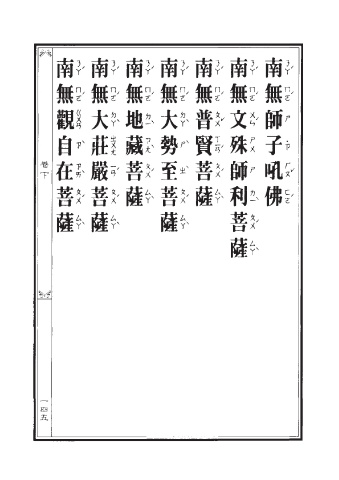 南無師子吼佛
南無文殊師利菩薩
南無普賢菩薩
南無大勢至菩薩
南無地藏菩薩
南無大莊嚴菩薩
南無觀自在菩薩
卷下
一四五